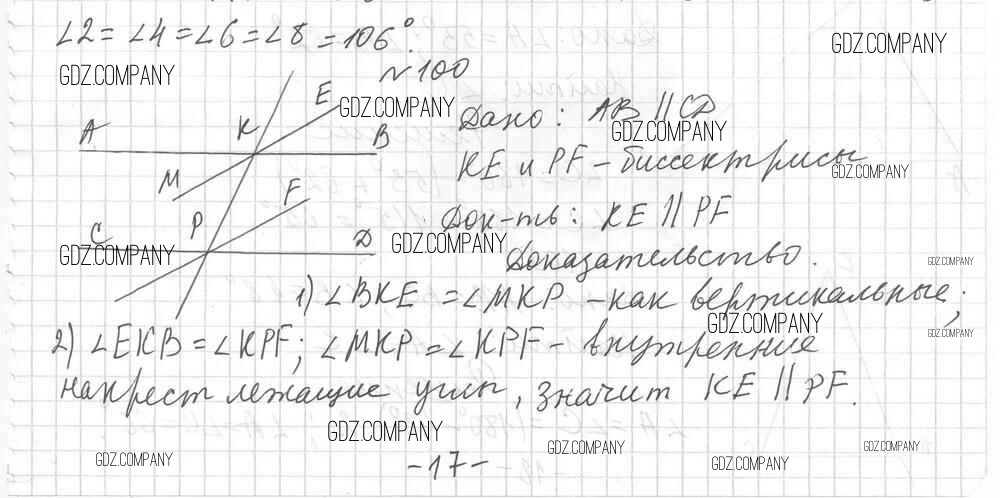 ∠2 = ∠4 = ∠6 = ∠8 = 106°.
GDZ.COMPANY
GDZ.COMPANY
N 100
A K E B
GDZ.COMPANY
Дано: AB || CD
GDZ.COMPANY
KE и PF – биссектрисы
GDZ.COMPANY
M F
Док-ть: KE || PF
C P D
GDZ.COMPANY
GDZ.COMPANY
Доказательство.
GDZ.COMPANY
1) ∠BKE = ∠MKP – как вертикальные;
GDZ.COMPANY
GDZ.COMPANY
2) ∠EKB = ∠KPF; ∠MKP = ∠KPF – внутренние
накрест лежащие углы, значит KE || PF.
GDZ.COMPANY
GDZ.COMPANY
GDZ.COMPANY
GDZ.COMPANY
GDZ.COMPANY
-17-